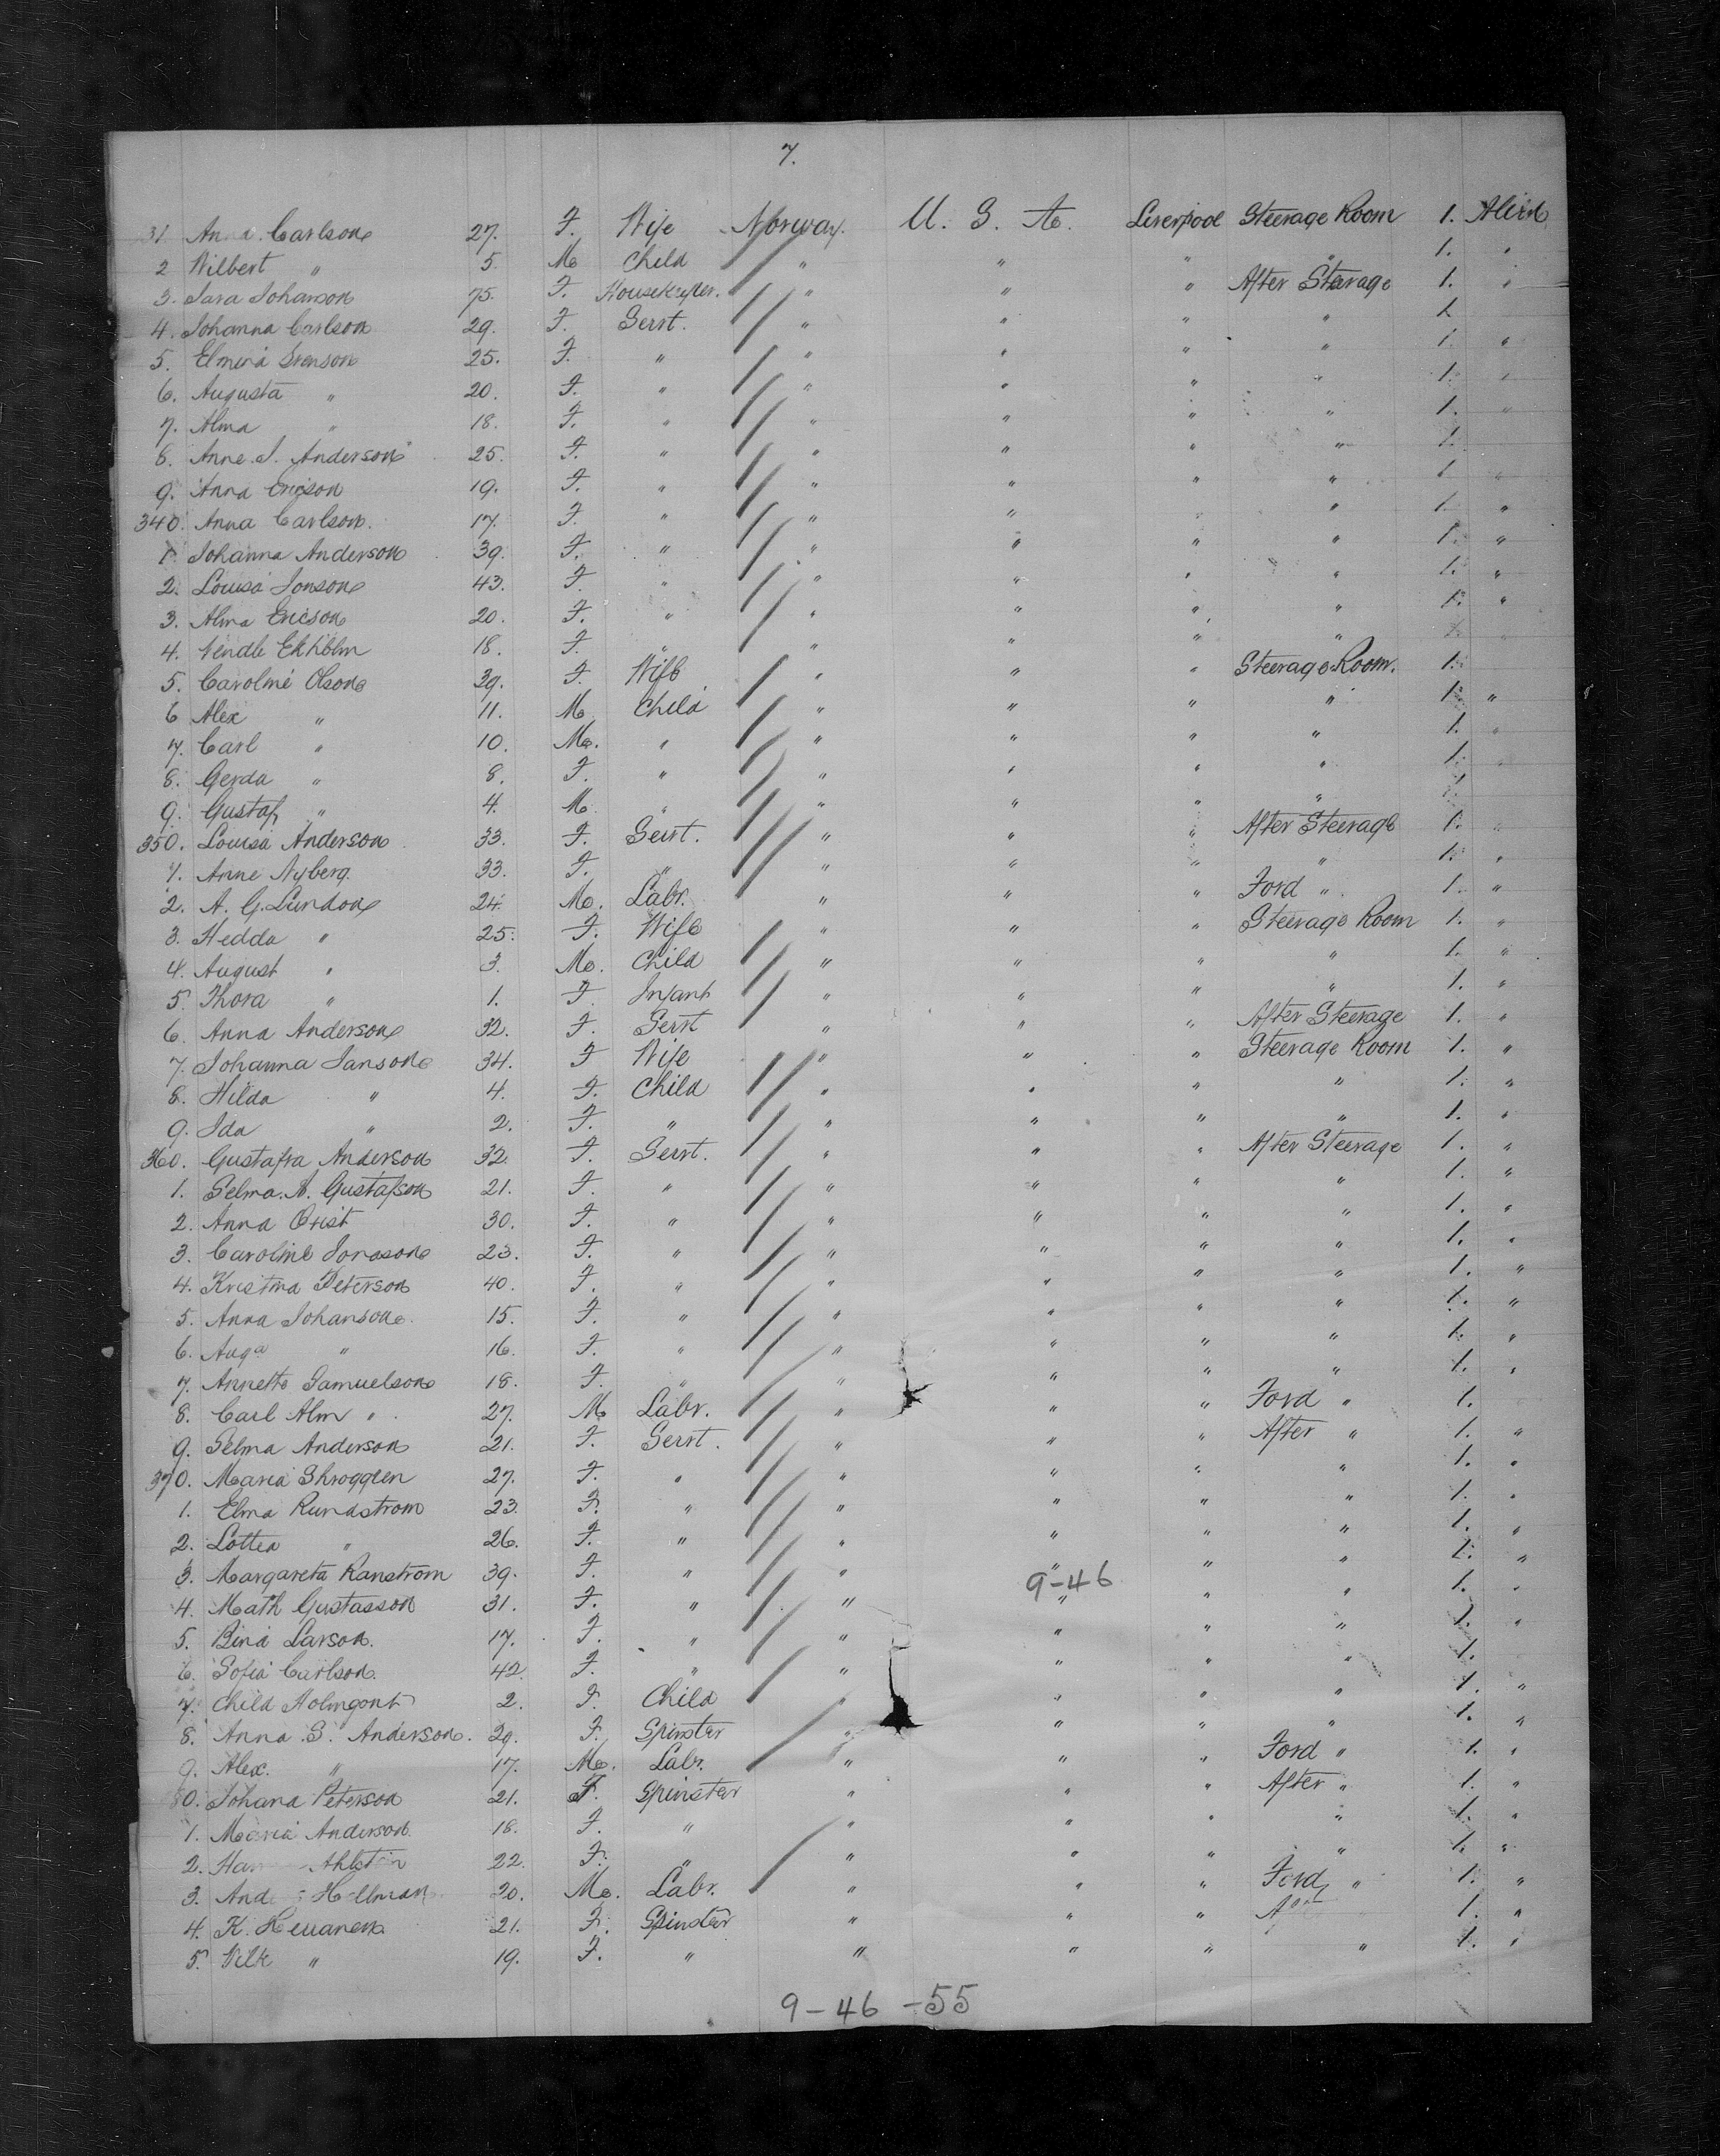 7.
31 Anna Carlson 27. F. Wife Norway. U. S. A. Liverpool Steerage Room 1. Alien
2 Wilbert " 5. M Child " " " " 1. "
3. Sara Johanson 75. F. Housekeeper. " " " After Steerage 1. "
4. Johanna Carlson 29. F. Servt. " " " " 1.
5. Elmina Svenson 25. F. " " " " " 1. "
6. Augusta " 20. F. " " " " " 1. "
7. Alma " 18. F. " " " " " 1. "
8. Anne. J. Anderson 25. F. " " " " " 1.
9. Anna Ericson 19. F. " " " " " 1. "
340. Anna Carlson. 17. F. " " " " " 1. "
1. Johanna Anderson 39. F. " " " " " 1. "
2. Louisa Jonson 43. F. " " " " " 1. "
3. Alma Ericson 20. F. " " " " " 1. "
4. Vendle Ekholm 18. F. " " " " " 1. "
5. Caroline Olson 39. F. Wife " " " Steerage Room. 1.
6 Alex " 11. M Child " " " " 1. "
7. Carl " 10. M. " " " " " 1. "
8. Gerda " 8. F. " " " " " 1. "
9. Gustaf " 4. M " " " " " 1.
350. Louisa Anderson 33. F. Servt. " " " After Steerage 1. "
1. Anne Nyberg. 33. F. " " " " " 1. "
2. A. G. Lundon 24. M. Labr. " " " Ford " 1. "
3. Hedda " 25. F. Wife " " " Steerage Room 1. "
4. August " 3. M. Child " " " " 1. "
5. Thora " 1. F. Infant " " " " 1. "
6. Anna Anderson 32. F. Servt " " " After Steerage 1. "
7. Johanna Janson 34. F Wife " " " Steerage Room 1. "
8. Hilda " 4. F. Child " " " " 1. "
9. Ida " 2. F. " " " " " 1. "
360. Gustafva Anderson 32. F. Servt. " " " After Steerage 1. "
1. Selma. A. Gustafson 21. F. " " " " " 1. "
2. Anna Qvist 30. F. " " " " " 1. "
3. Caroline Jonasson 23. F. " " " " " 1. "
4. Kristina Peterson 40. F. " " " " " 1. "
5. Anna Johanson. 15. F. " " " " " 1. "
6. Auga " 16. F. " " " " " 1. "
7. Annette Samuelson 18. F. " " " " " 1. "
8. Carl Alm " 27. M Labr. " " " Ford " 1.
9. Selma Anderson 21. F. Servt. " " " After " 1. "
370. Maria Shrogglen 27. F. " " " " " 1. "
1. Elma Rundstrom 23. F. " " " " " 1. "
2. Lotten " 26. F. " " " " " 1. "
3. Margareta Ranstrom 39. F. " " " " " 1. "
9-46
4. Math Gustasson 31. F. " " " " " 1. "
5. Bina Larson. 17. F. " " " " " 1. "
6. Sofia Carlson. 42. F. " " " " " 1.
7. Child Holmgont 2. F. Child " " " " 1. "
8. Anna S. Anderson. 29. F. Spinster " " " " 1. "
9. Alex. " 17. M. Labr. " " " Ford " 1. "
80. Johana Peterson 21. F. Spinster " " " After " 1. "
1. Maria Anderson. 18. F. " " " " " 1. "
2. 22. F. " " " " " 1. "
3. 20. M. Labr. " " " Ford " 1. "
4. K. 21. F. Spinster " " " 1. "
5. " 19. F. " " " " " 1. "
9-46-55